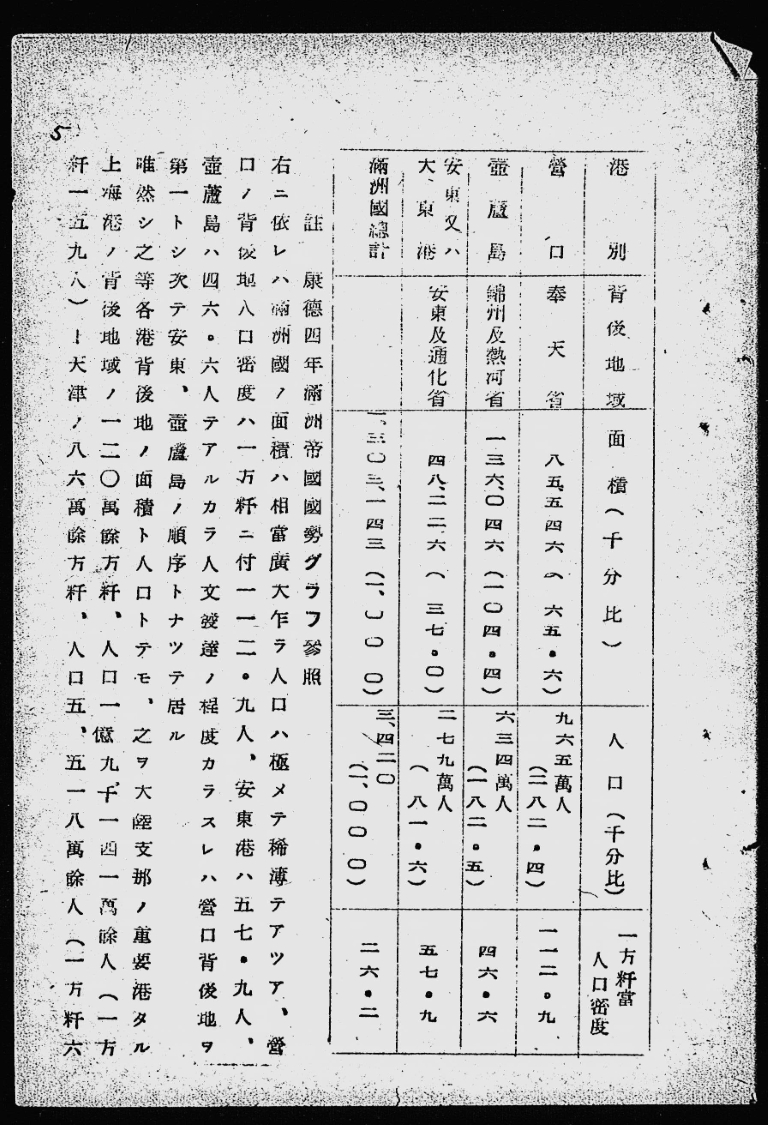 港別 背後地域 面積（千分比） 人口（千分比） 一方粁當人口密度
營口 奉天省 八五、五四六（六五・六） 九六五萬人（二八二・四） 一一二・九
壺蘆島 錦州及熱河省 一三六、〇四六（一〇四・四） 六三四萬人（一八二・五） 四六・六
安東又ハ大東港 安東及通化省 四八、二二六（三七・〇） 二七九萬人（八一・六） 五七・九
滿洲國總計 一、三〇三、一四三（一、〇〇〇） 三、四二〇（一、〇〇〇） 二六・二
註 康德四年滿洲帝國國勢グラフ參照
右ニ依レハ滿洲國ノ面積ハ相當廣大乍ラ人口ハ極メテ稀薄テアツア、營
口ノ背後地人口密度ハ一方粁ニ付一一二・九人、安東港ハ五七・九人、
壺蘆島ハ四六・六人テアルカラ人文發達ノ程度カラスレハ營口背後地ヲ
第一トシ次テ安東、壺蘆島ノ順序トナツテ居ル
唯然シ之等各港背後地ノ面積ト人口トテモ、之ヲ大陸支那ノ重要港タル
上海港ノ背後地域ノ一二〇萬餘方粁、人口一億九千一四一萬餘人（一方
粁一五九人）—天津ノ八六萬餘方粁、人口五、五一八萬餘人（一方粁六
5